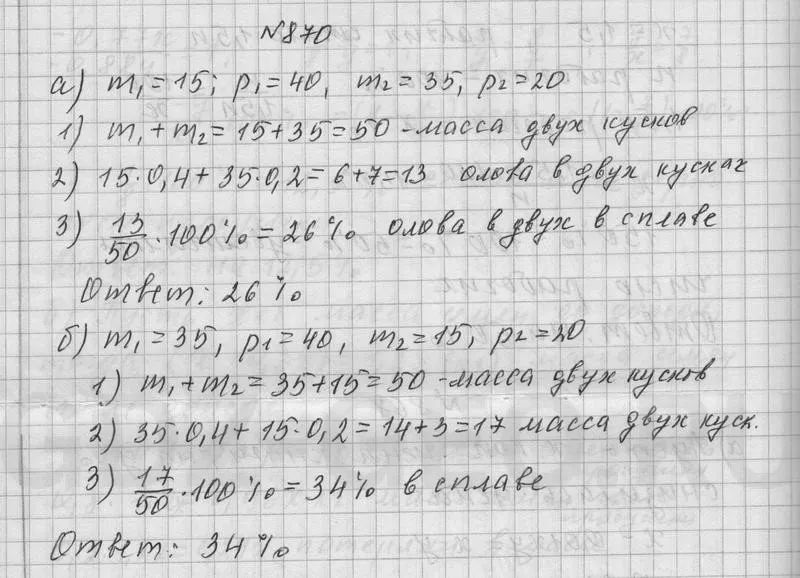 №870
а) m₁ = 15; p₁ = 40, m₂ = 35, p₂ = 20
1) m₁ + m₂ = 15 + 35 = 50 - масса двух кусков
2) 15·0,4 + 35·0,2 = 6 + 7 = 13 олова в двух кусках
3) 13/50 · 100% = 26% олова в двух в сплаве
Ответ: 26%
б) m₁ = 35, p₁ = 40, m₂ = 15, p₂ = 20
1) m₁ + m₂ = 35 + 15 = 50 - масса двух кусков
2) 35·0,4 + 15·0,2 = 14 + 3 = 17 масса двух куск.
3) 17/50 · 100% = 34% в сплаве
Ответ: 34%